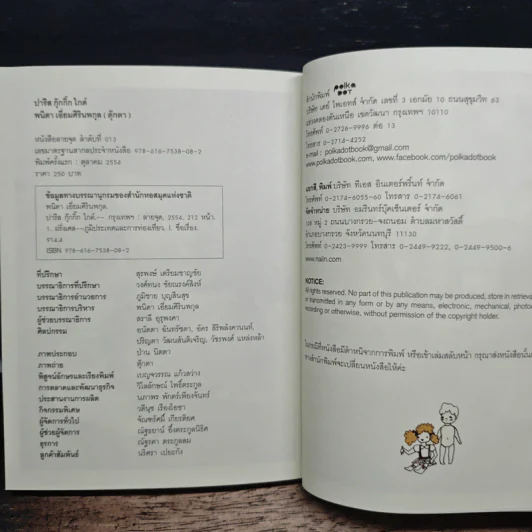 ปารีส กุ๊กกิ๊ก ไกด์
พนิดา เอี่ยมศิรินพกุล ( ตุ๊กตา )
หนังสือลายจุด ลำดับที่ 013
เลขมาตรฐานสากลประจำหนังสือ 978-616-7538-08-2
พิมพ์ครั้งแรก : ตุลาคม 2554
ราคา 250 บาท
ข้อมูลทางบรรณานุกรมของสำนักหอสมุดแห่งชาติ
พนิดา เอี่ยมศิรินพกุล.
ปารีส กุ๊กกิ๊ก ไกด์.-- กรุงเทพฯ : ลายจุด, 2554. 212 หน้า.
1. ฝรั่งเศส--ภูมิประเทศและการท่องเที่ยว. I. ชื่อเรื่อง.
914.4
ISBN 978-616-7538-08-2
ที่ปรึกษา สุรพงษ์ เตรียมชาญชัย
บรรณาธิการที่ปรึกษา วงศ์ทนง ชัยณรงค์สิงห์
บรรณาธิการอำนวยการ ภูมิชาย บุญสินสุข
บรรณาธิการบริหาร พนิดา เอี่ยมศิรินพกุล
ผู้ช่วยบรรณาธิการ ดราลี อุรุพงศา
ศิลปกรรม อนัตตา อินทรัชตา, อัคร สิริพลังคานนท์,
ปริญดา วัฒนสันติเจริญ, วัชรพงศ์ แหล่งหล้า
ภาพประกอบ ป่าน นิตตา
ภาพถ่าย ตุ๊กตา
พิสูจน์อักษรและเรียงพิมพ์ เบญจวรรณ แก้วสว่าง
การตลาดและพัฒนาธุรกิจ วิไลลักษณ์ โพธิ์ตระกูล
ประสานงานการผลิต นภาพร พักตร์เพียงจันทร์
กิจกรรมพิเศษ วดีนุช เรืองไธยา
ผู้จัดการทั่วไป จัณฑรัศมิ์ เกียรติยศ
ผู้ช่วยผู้จัดการ ณัฐธยาน์ อึ้งตระกูลนิธิศ
ธุรการ ณัฐรดา ตระกูลสม
ลูกค้าสัมพันธ์ นริศรา เปยะกัง
สำนักพิมพ์ polka DOT
บริษัท เดย์ โพเอทส์ จำกัด เลขที่ 3 เอกมัย 10 ถนนสุขุมวิท 63
แขวงคลองตันเหนือ เขตวัฒนา กรุงเทพฯ 10110
โทรศัพท์ 0-2726-9996 ต่อ 13
โทรสาร 0-2714-4252
e-mail : polkadotbook@gmail.com
www.polkadotbook.com, www.facebook.com/polkadotbook
แยกสี, พิมพ์ บริษัท ทีเอส อินเตอร์พริ้นท์ จำกัด
โทร 0-2174-6055-60 โทรสาร 0-2174-6061
จัดจำหน่าย บริษัท อมรินทร์บุ๊คเซ็นเตอร์ จำกัด
108 หมู่ 2 ถนนบางกรวย-จงถนอม ตำบลมหาสวัสดิ์
อำเภอบางกรวย จังหวัดนนทบุรี 11130
โทรศัพท์ 0-2423-9999 โทรสาร 0-2449-9222, 0-2449-9500-6
www.naiin.com
NOTICE:
All rights reserved. No part of this publication may be produced, store in retrieva
or transmitted in any form or by any means, electronic, mechanical, photoc
recording or otherwise, without permission of the copyright holder.
ในกรณีที่หนังสือมีตำหนิจากการพิมพ์ หรือเข้าเล่มสลับหน้า กรุณาส่งหนังสือนั้น
ทางสำนักพิมพ์จะเปลี่ยนหนังสือให้ค่ะ